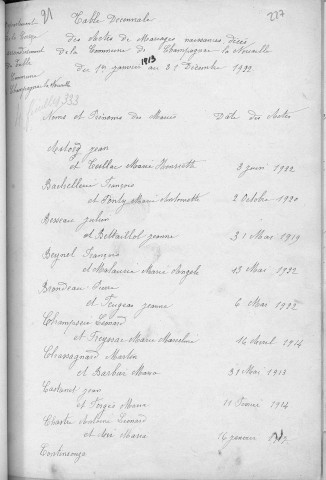 91
Table Decennale
227
Département
de la Corrèze
des Actes de Mariages naissances, décès
arrondissement
de Tulle
de la Commune de Champagnac la Noaille
Commune
du 1er janvier 1913 au 31 Décembre 1922
Champagnac la Noaille
Noms et Prénoms des Mariés Date des Actes
jean
et Marie Henriette 3 juin 1922
Bachellerie François
et Marie Antoinette 2 Octobre 1920
Besseau julien
et jeanne 31 Mai 1919
Beynel François
et Malaurie Marie Angèle 13 Mai 1922
Brondeau Pierre
et Feugeas jeanne 6 Mai 1922
Champseix Léonard
et Freyssac Marie Marceline 16 Avril 1914
Chassagnard Martin
et Barbier Maria 31 Mai 1913
Castanet jean
et Forgès Maria 11 Février 1914
Chastre Antoine Léonard
et Maria 16 janvier
Continsouza